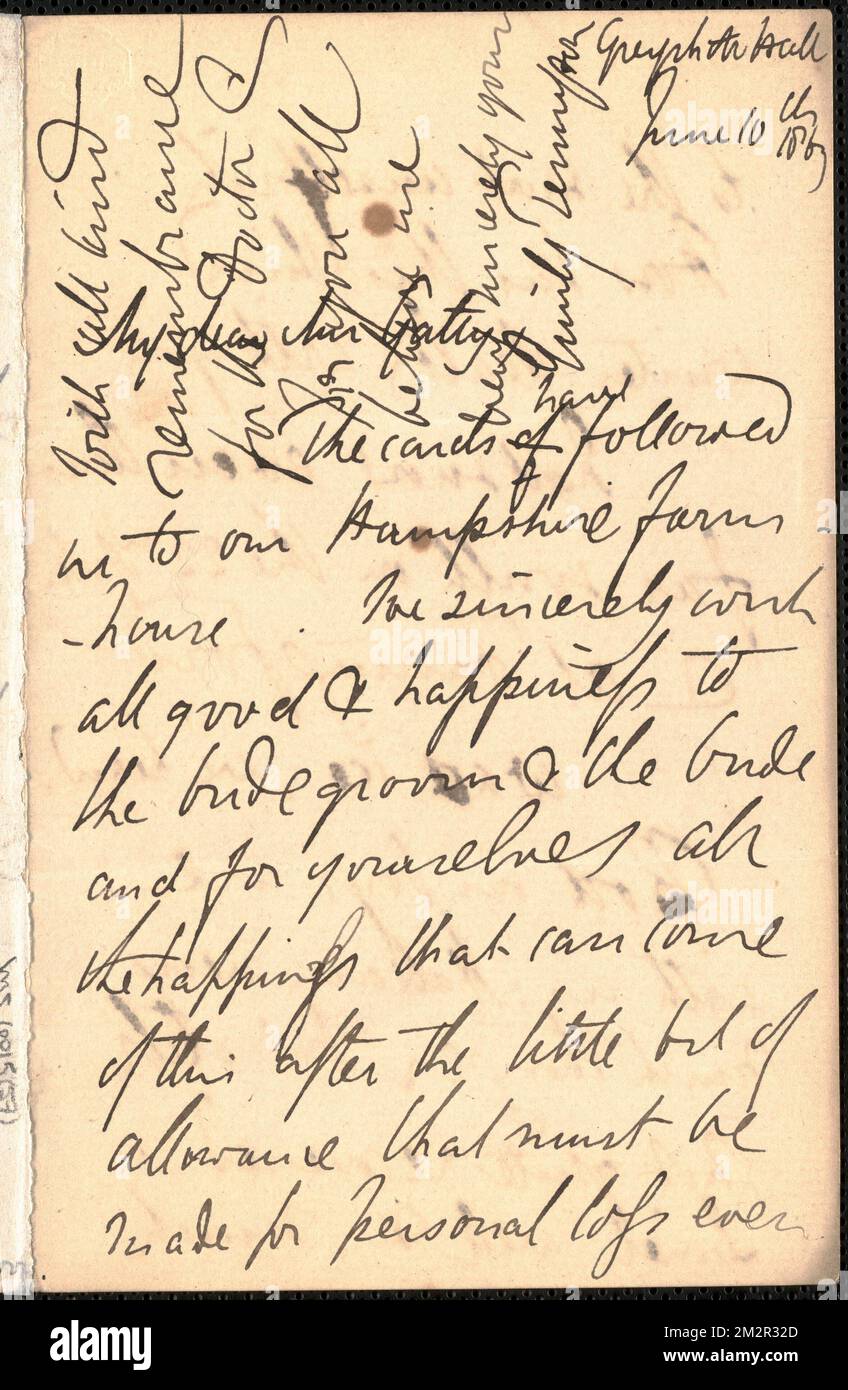 Greyshott Hall
June 10th 1867
My dear Mrs Gatty,
The cards of have followed
us to our Hampshire farm
-house. We sincerely wish
all good & happiness to
the bridegroom & the bride
and for yourselves all
the happiness that can come
of this after the little bit of
allowance that must be
made for personal loss even
With all kind
remembrance
for the Doctor &
for you all
believe me
very sincerely yours
Emily Tennyson
MS (0015(57)
alamy
Image ID: 2M2R32D
www.alamy.com